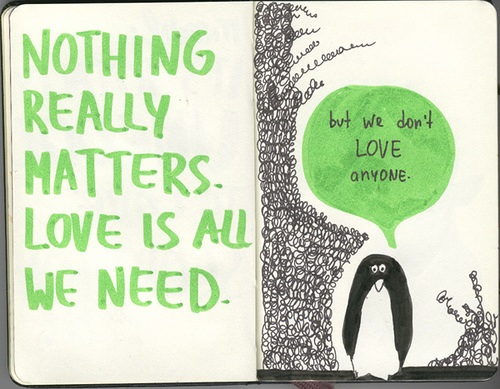 NOTHING
REALLY
MATTERS.
LOVE IS ALL
WE NEED.
but we don't
LOVE
anyone.